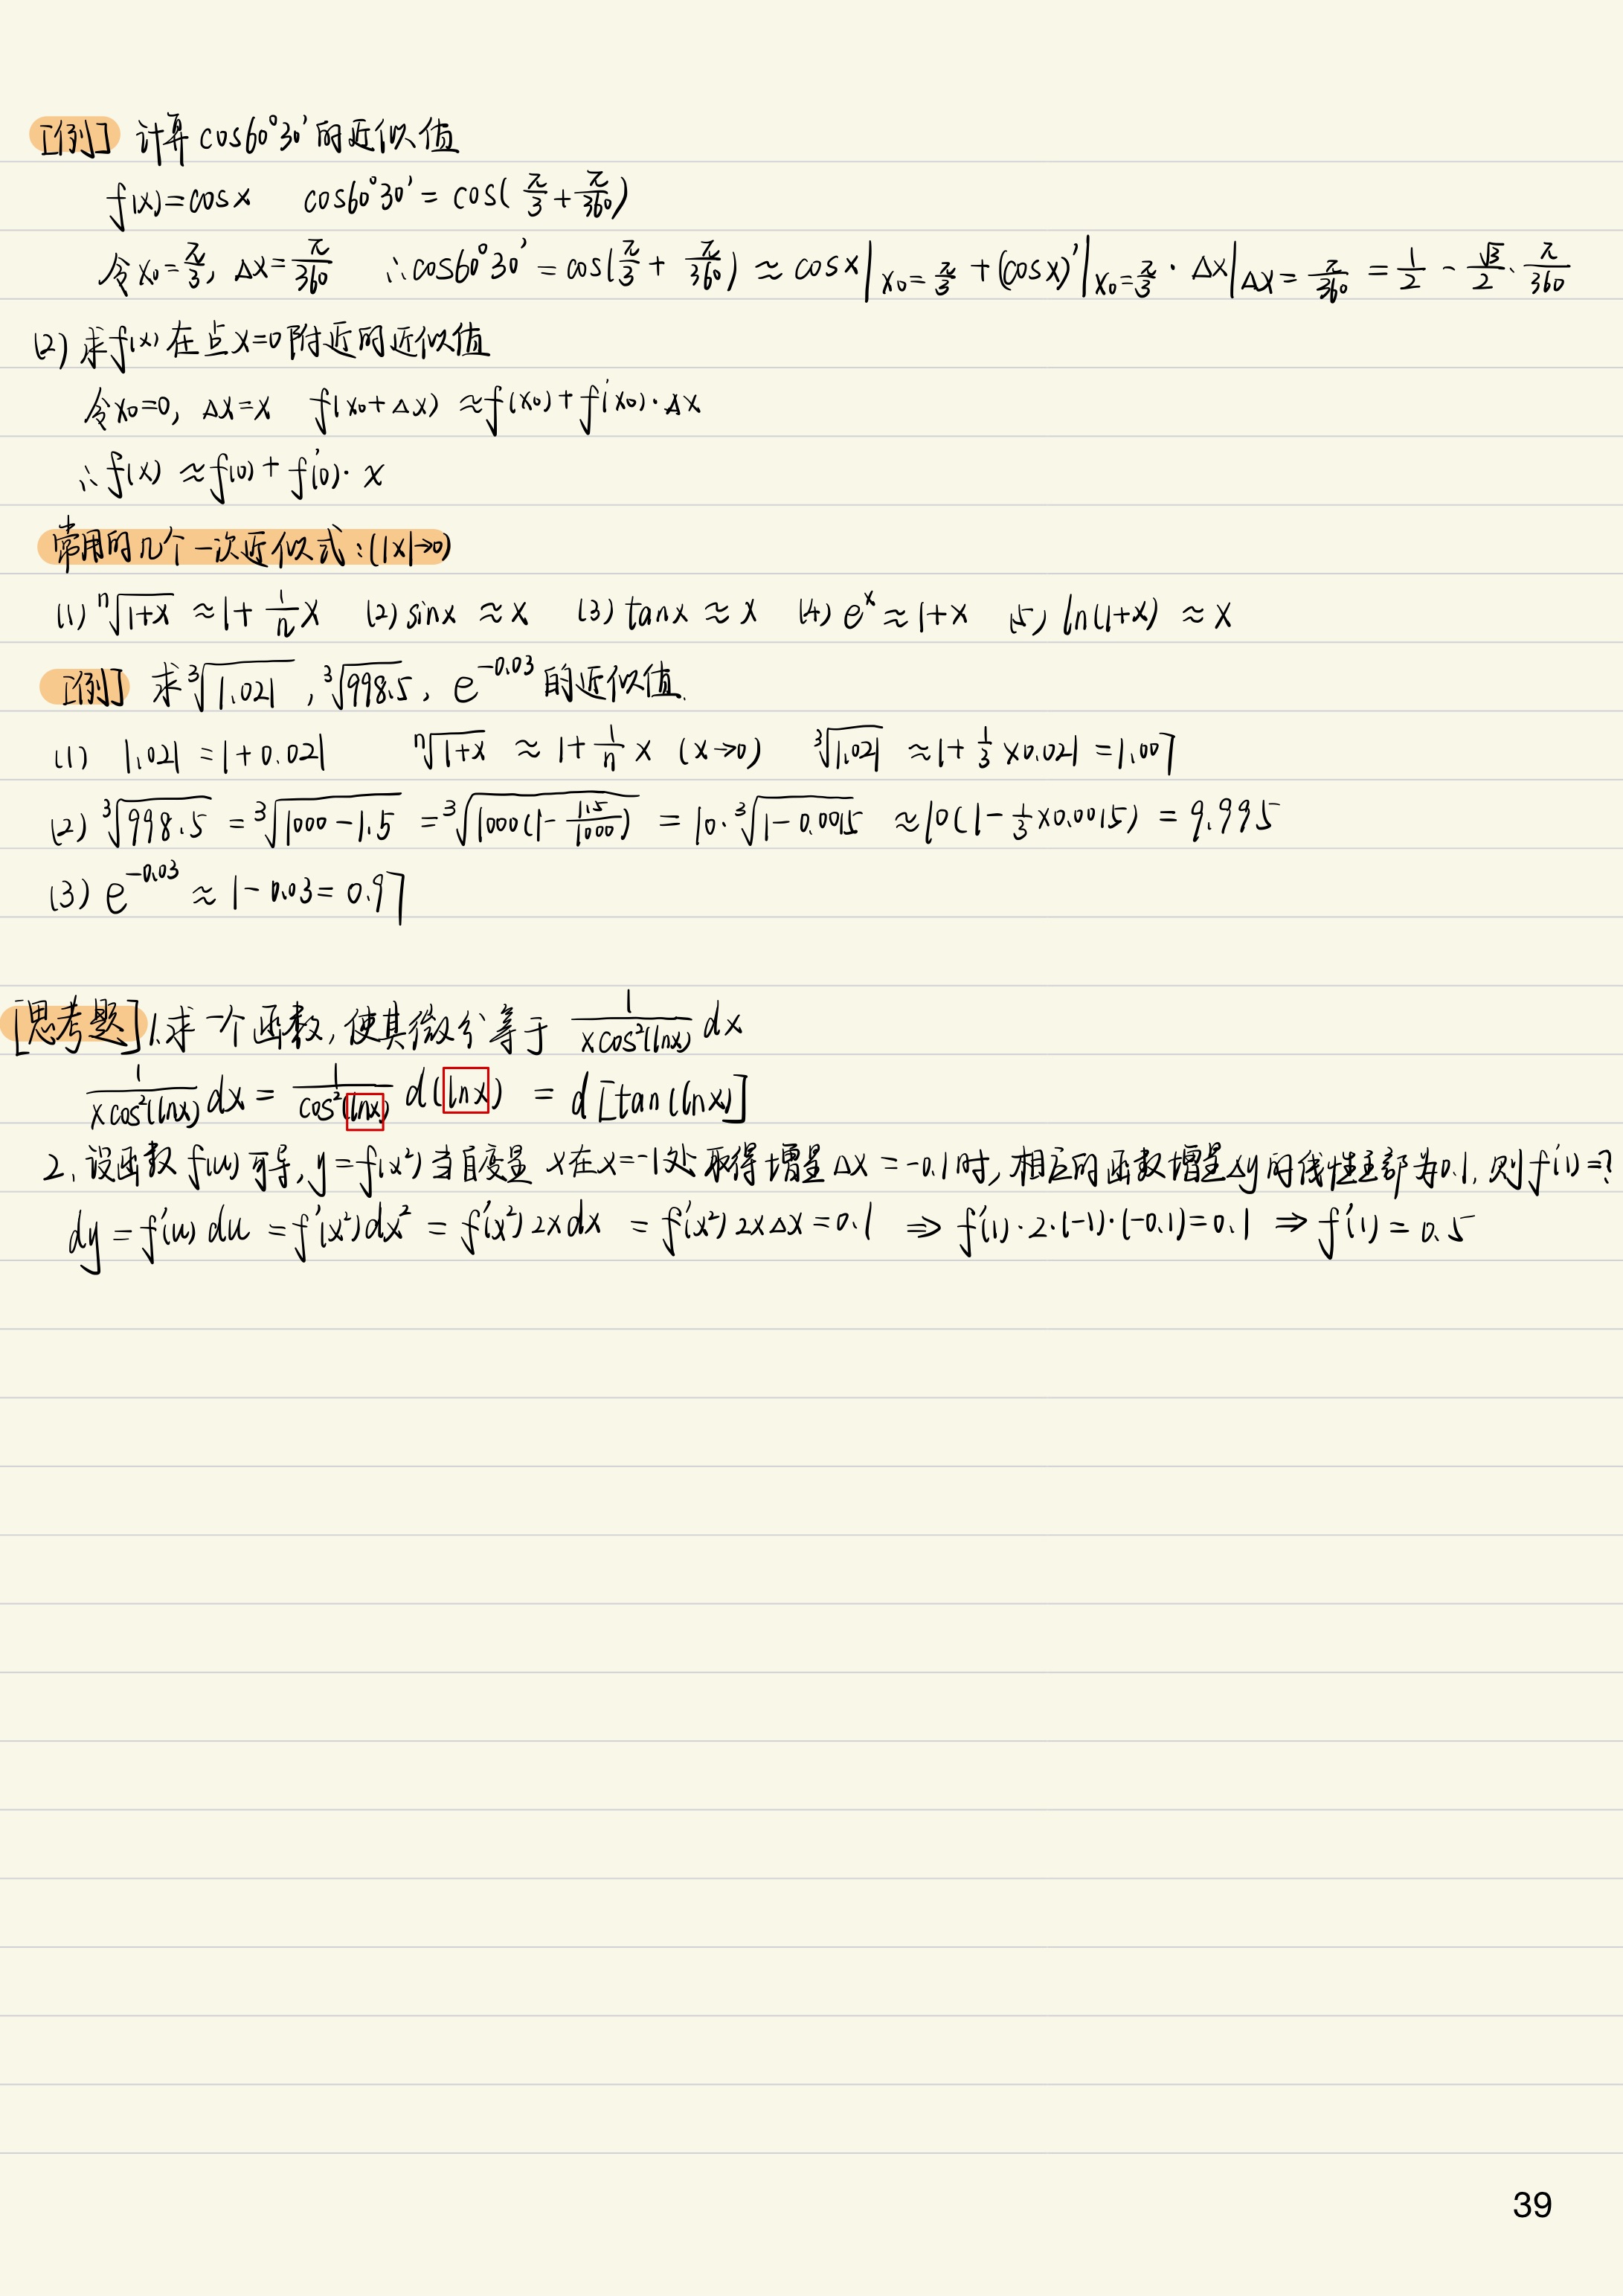 [例] 计算cos60°30′的近似值
f(x)=cosx cos60°30′ = cos(π/3+π/360)
令x₀=π/3, Δx=π/360 ∴cos60°30′ = cos(π/3+π/360) ≈ cosx|x₀=π/3 + (cosx)′|x₀=π/3 · Δx|Δx=π/360 = 1/2 - √3/2 · π/360
(2) 求f(x)在点x=0附近的近似值
令x₀=0, Δx=x f(x₀+Δx) ≈f(x₀)+f′(x₀)·Δx
∴f(x) ≈f(0)+f′(0)·x
常用的几个一次近似式:(|x|→0)
(1) ⁿ√(1+x) ≈1+1/n x (2) sinx ≈ x (3) tanx ≈ x (4) eˣ≈1+x (5) ln(1+x) ≈ x
[例] 求³√1.021, ³√998.5, e^(-0.03)的近似值.
(1) 1.021 =1+0.021 ⁿ√(1+x) ≈ 1+1/n x (x→0) ³√1.021 ≈1+1/3×0.021=1.007
(2) ³√998.5 =³√(1000-1.5) =³√(1000(1-1.5/1000)) = 10·³√(1-0.0015) ≈10(1-1/3×0.0015) = 9.995
(3) e^(-0.03) ≈ 1-0.03= 0.97
[思考题]1.求一个函数,使其微分等于 1/(xcos²(lnx)) dx
1/(xcos²(lnx)) dx = 1/(cos²(lnx)) d(lnx) = d[tan(lnx)]
2.设函数f(u)可导,y=f(x²)当自变量x在x=-1处取得增量Δx=-0.1时,相应的函数增量Δy的线性主部为0.1,则f′(1)=?
dy =f′(u) du =f′(x²)dx² = f′(x²) 2xdx = f′(x²) 2xΔx=0.1 ⇒ f′(1)·2·(-1)·(-0.1)=0.1 ⇒ f′(1) = 0.5
39